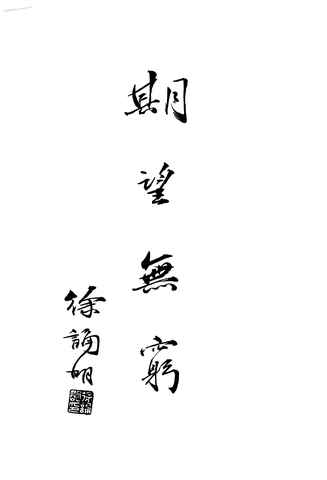 期望無窮
徐誦明